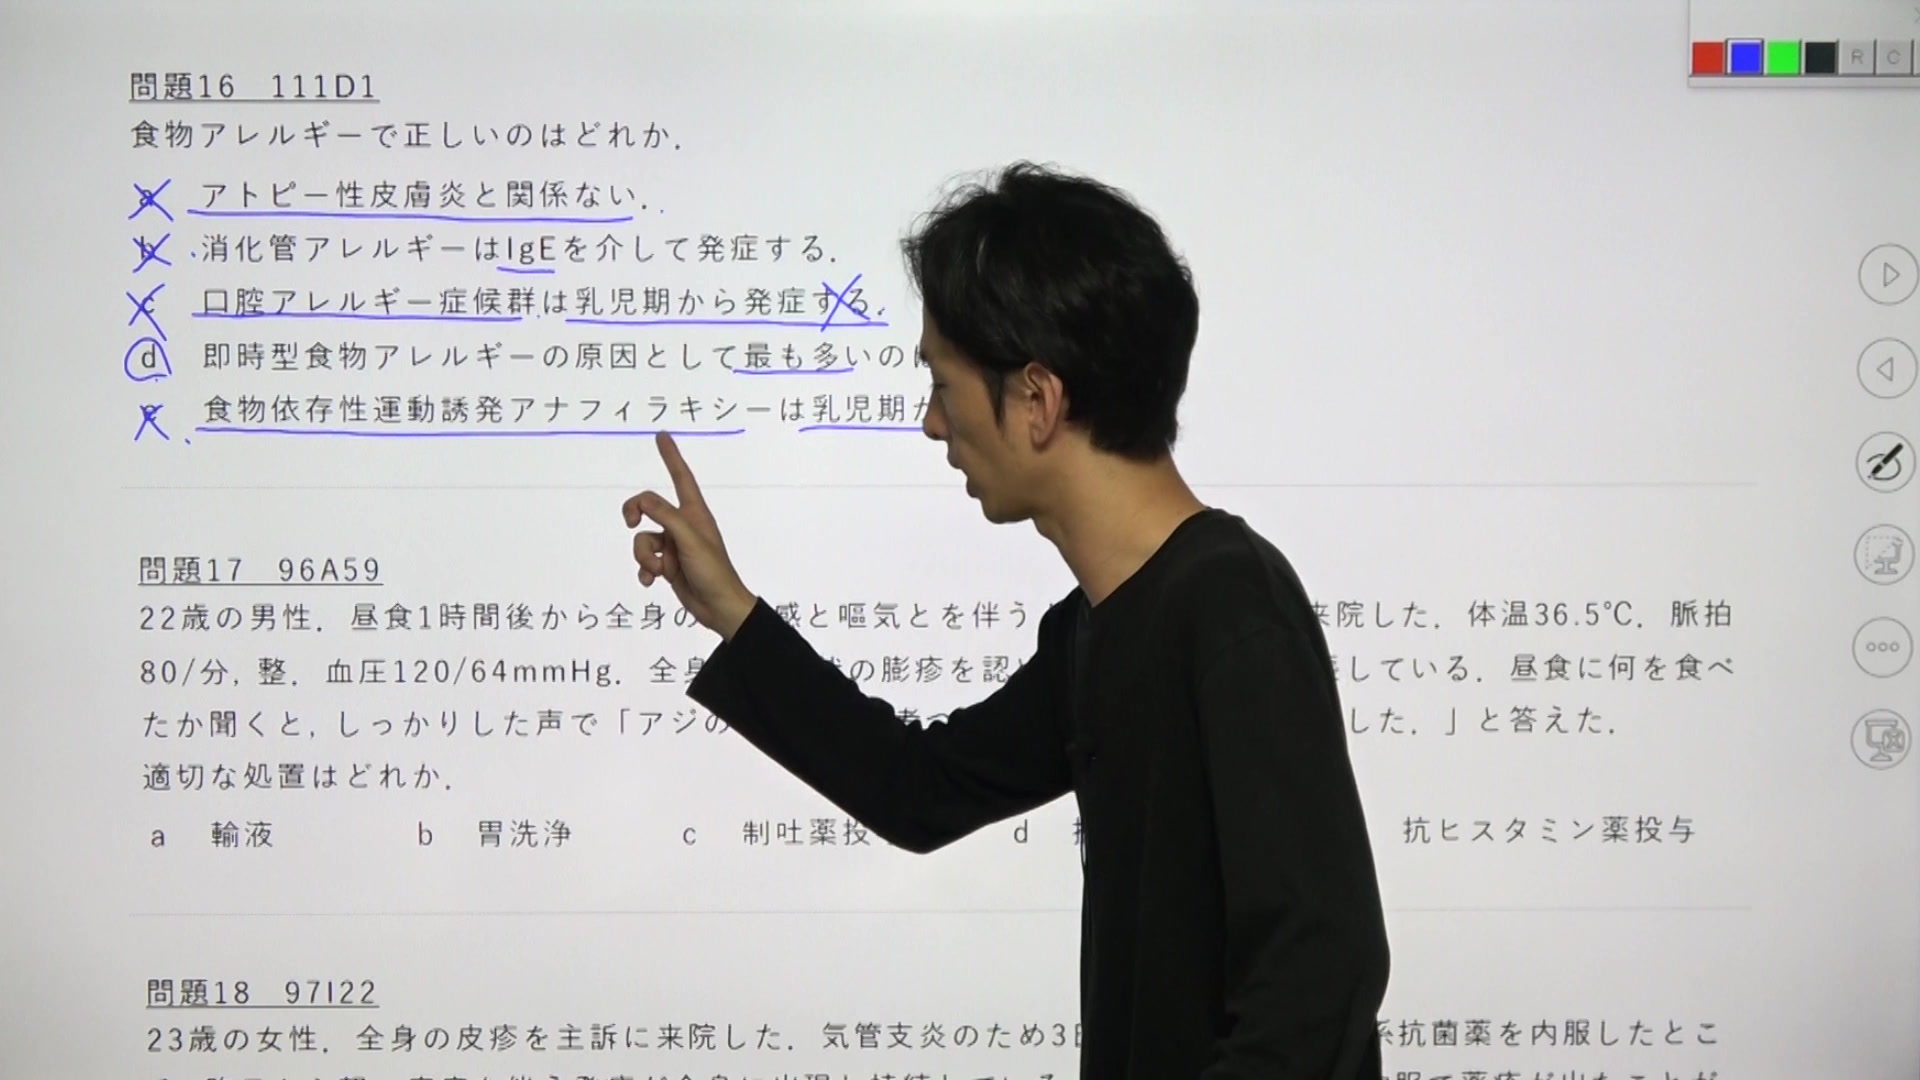 問題16 111D1
食物アレルギーで正しいのはどれか．
a アトピー性皮膚炎と関係ない．
b 消化管アレルギーはIgEを介して発症する．
c 口腔アレルギー症候群は乳児期から発症する．
d 即時型食物アレルギーの原因として最も多いの
e 食物依存性運動誘発アナフィラキシーは乳児期
問題17 96A59
22歳の男性．昼食1時間後から全身の 感と嘔気とを伴う 来院した．体温36.5℃．脈拍
80/分，整．血圧120/64mmHg．全身 の膨疹を認 している．昼食に何を食べ
たか聞くと，しっかりした声で「アジの した．」と答えた．
適切な処置はどれか．
a 輸液 b 胃洗浄 c 制吐薬投 d 抗ヒスタミン薬投与
問題18 97I22
23歳の女性．全身の皮疹を主訴に来院した．気管支炎のため3 系抗菌薬を内服したとこ
R C